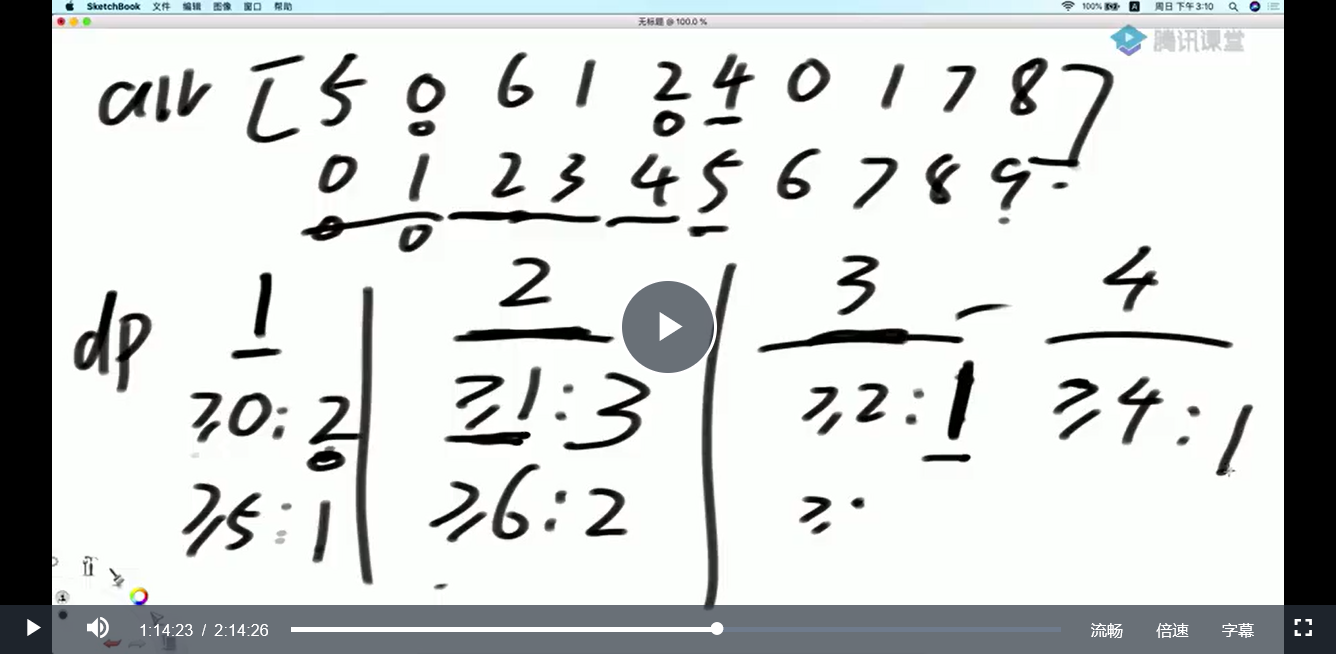 SketchBook 文件 编辑 图像 窗口 帮助 100% A 周日 下午3:10
无标题 @ 100.0 %
腾讯课堂
arr [5 0 6 1 2 4 0 1 7 8]
0 0
0 1 2 3 4 5 6 7 8 9
0 0
dp 1 2 3 4
≥0:2 ≥1:3 ≥2:1 ≥4:1
≥5:1 ≥6:2 ≥
1:14:23 / 2:14:26 流畅 倍速 字幕